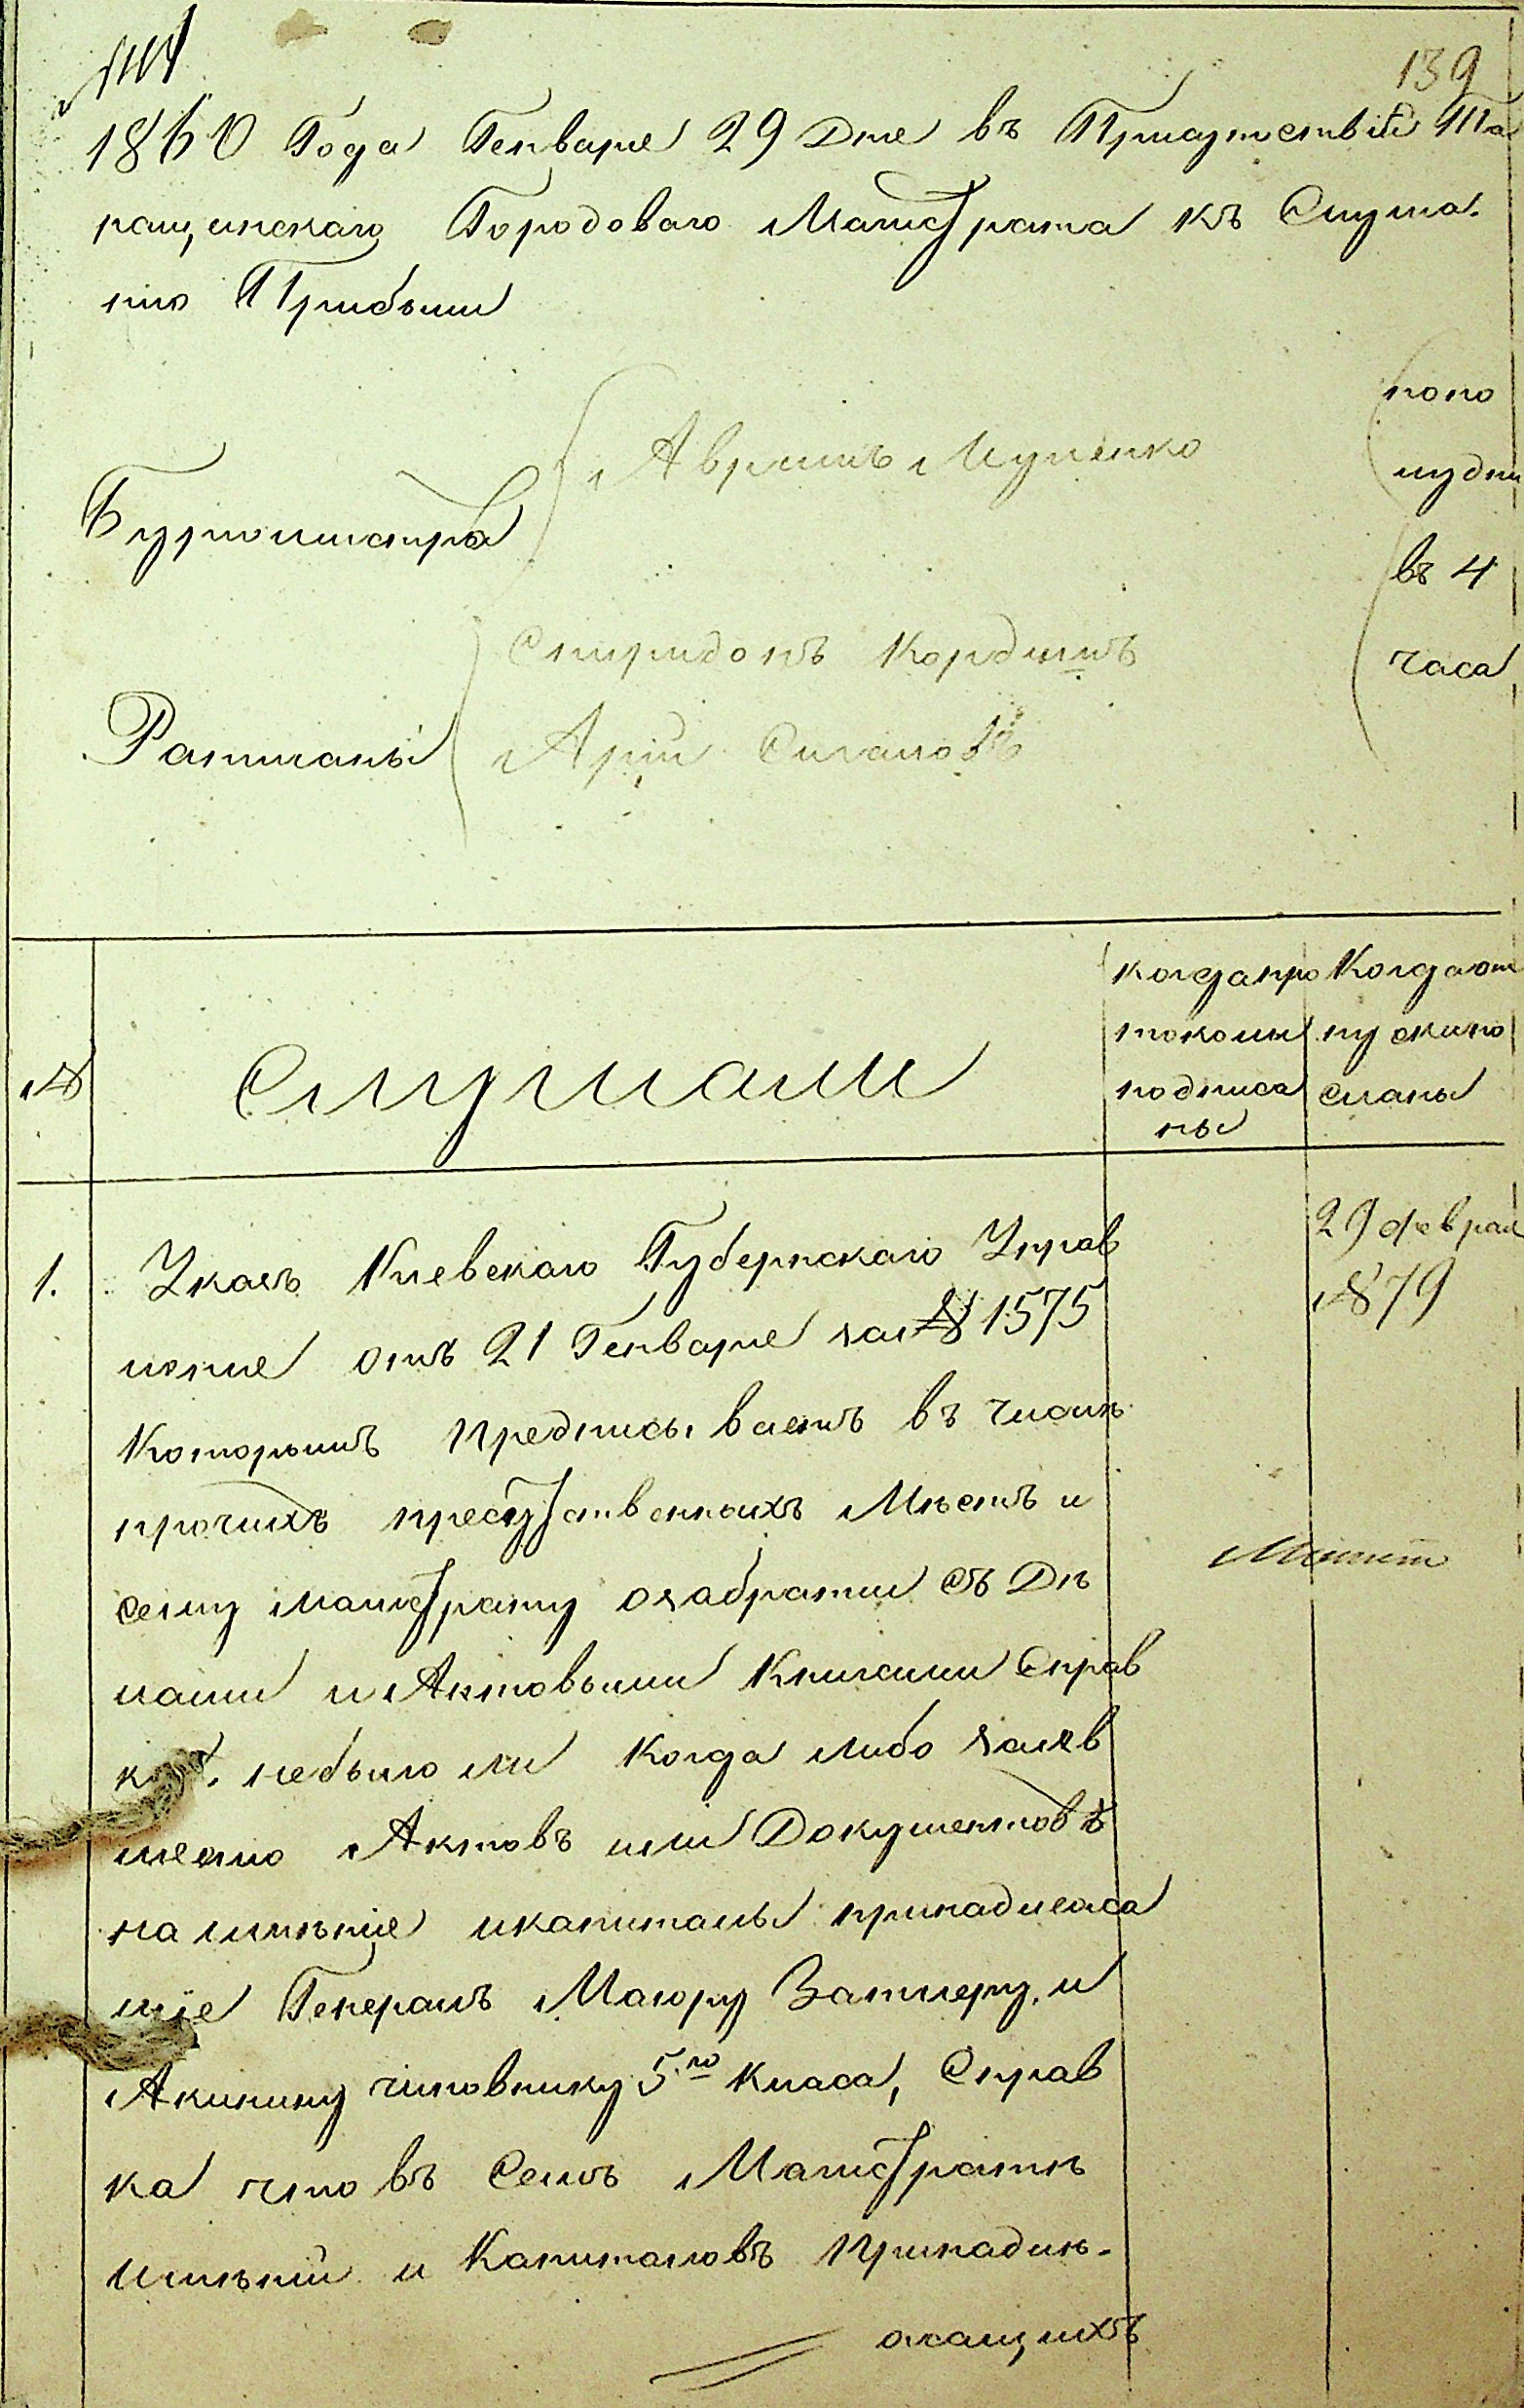 139
1860 Года Генваря 29 Дня въ Присутствій Та
ращанскаго Городоваго Магистрата къ Слуша
нію Прибыли
Бургомистръ
Аврамъ
Ратманы
Спиридонъ
попо
лудни
въ 4
часа
№
Слушали
когда про
токолы
подписа
ны
Когда от
пуски по
сланы
1. Указъ Киевскаго Губернскаго Прав
ленія отъ 21 Генваря за № 1575
Которымъ предписываетъ въ числѣ
прочихъ присутственныхъ Мѣстъ и
сему магистрату озабратли съ Дѣ
лами и Актовыми Книгами Справ
ку. небыло ли Когда либо заяв
лено Актовъ или Документовъ
на имѣніе и капиталы принадлежа
щіе Генералъ Маіору Затлеру, и
чиновнику 5го класа, Справ
ка что въ Семъ Магистратѣ
имѣній и Капиталовъ принадлѣ-
жащихъ
29 феврал
№ 79